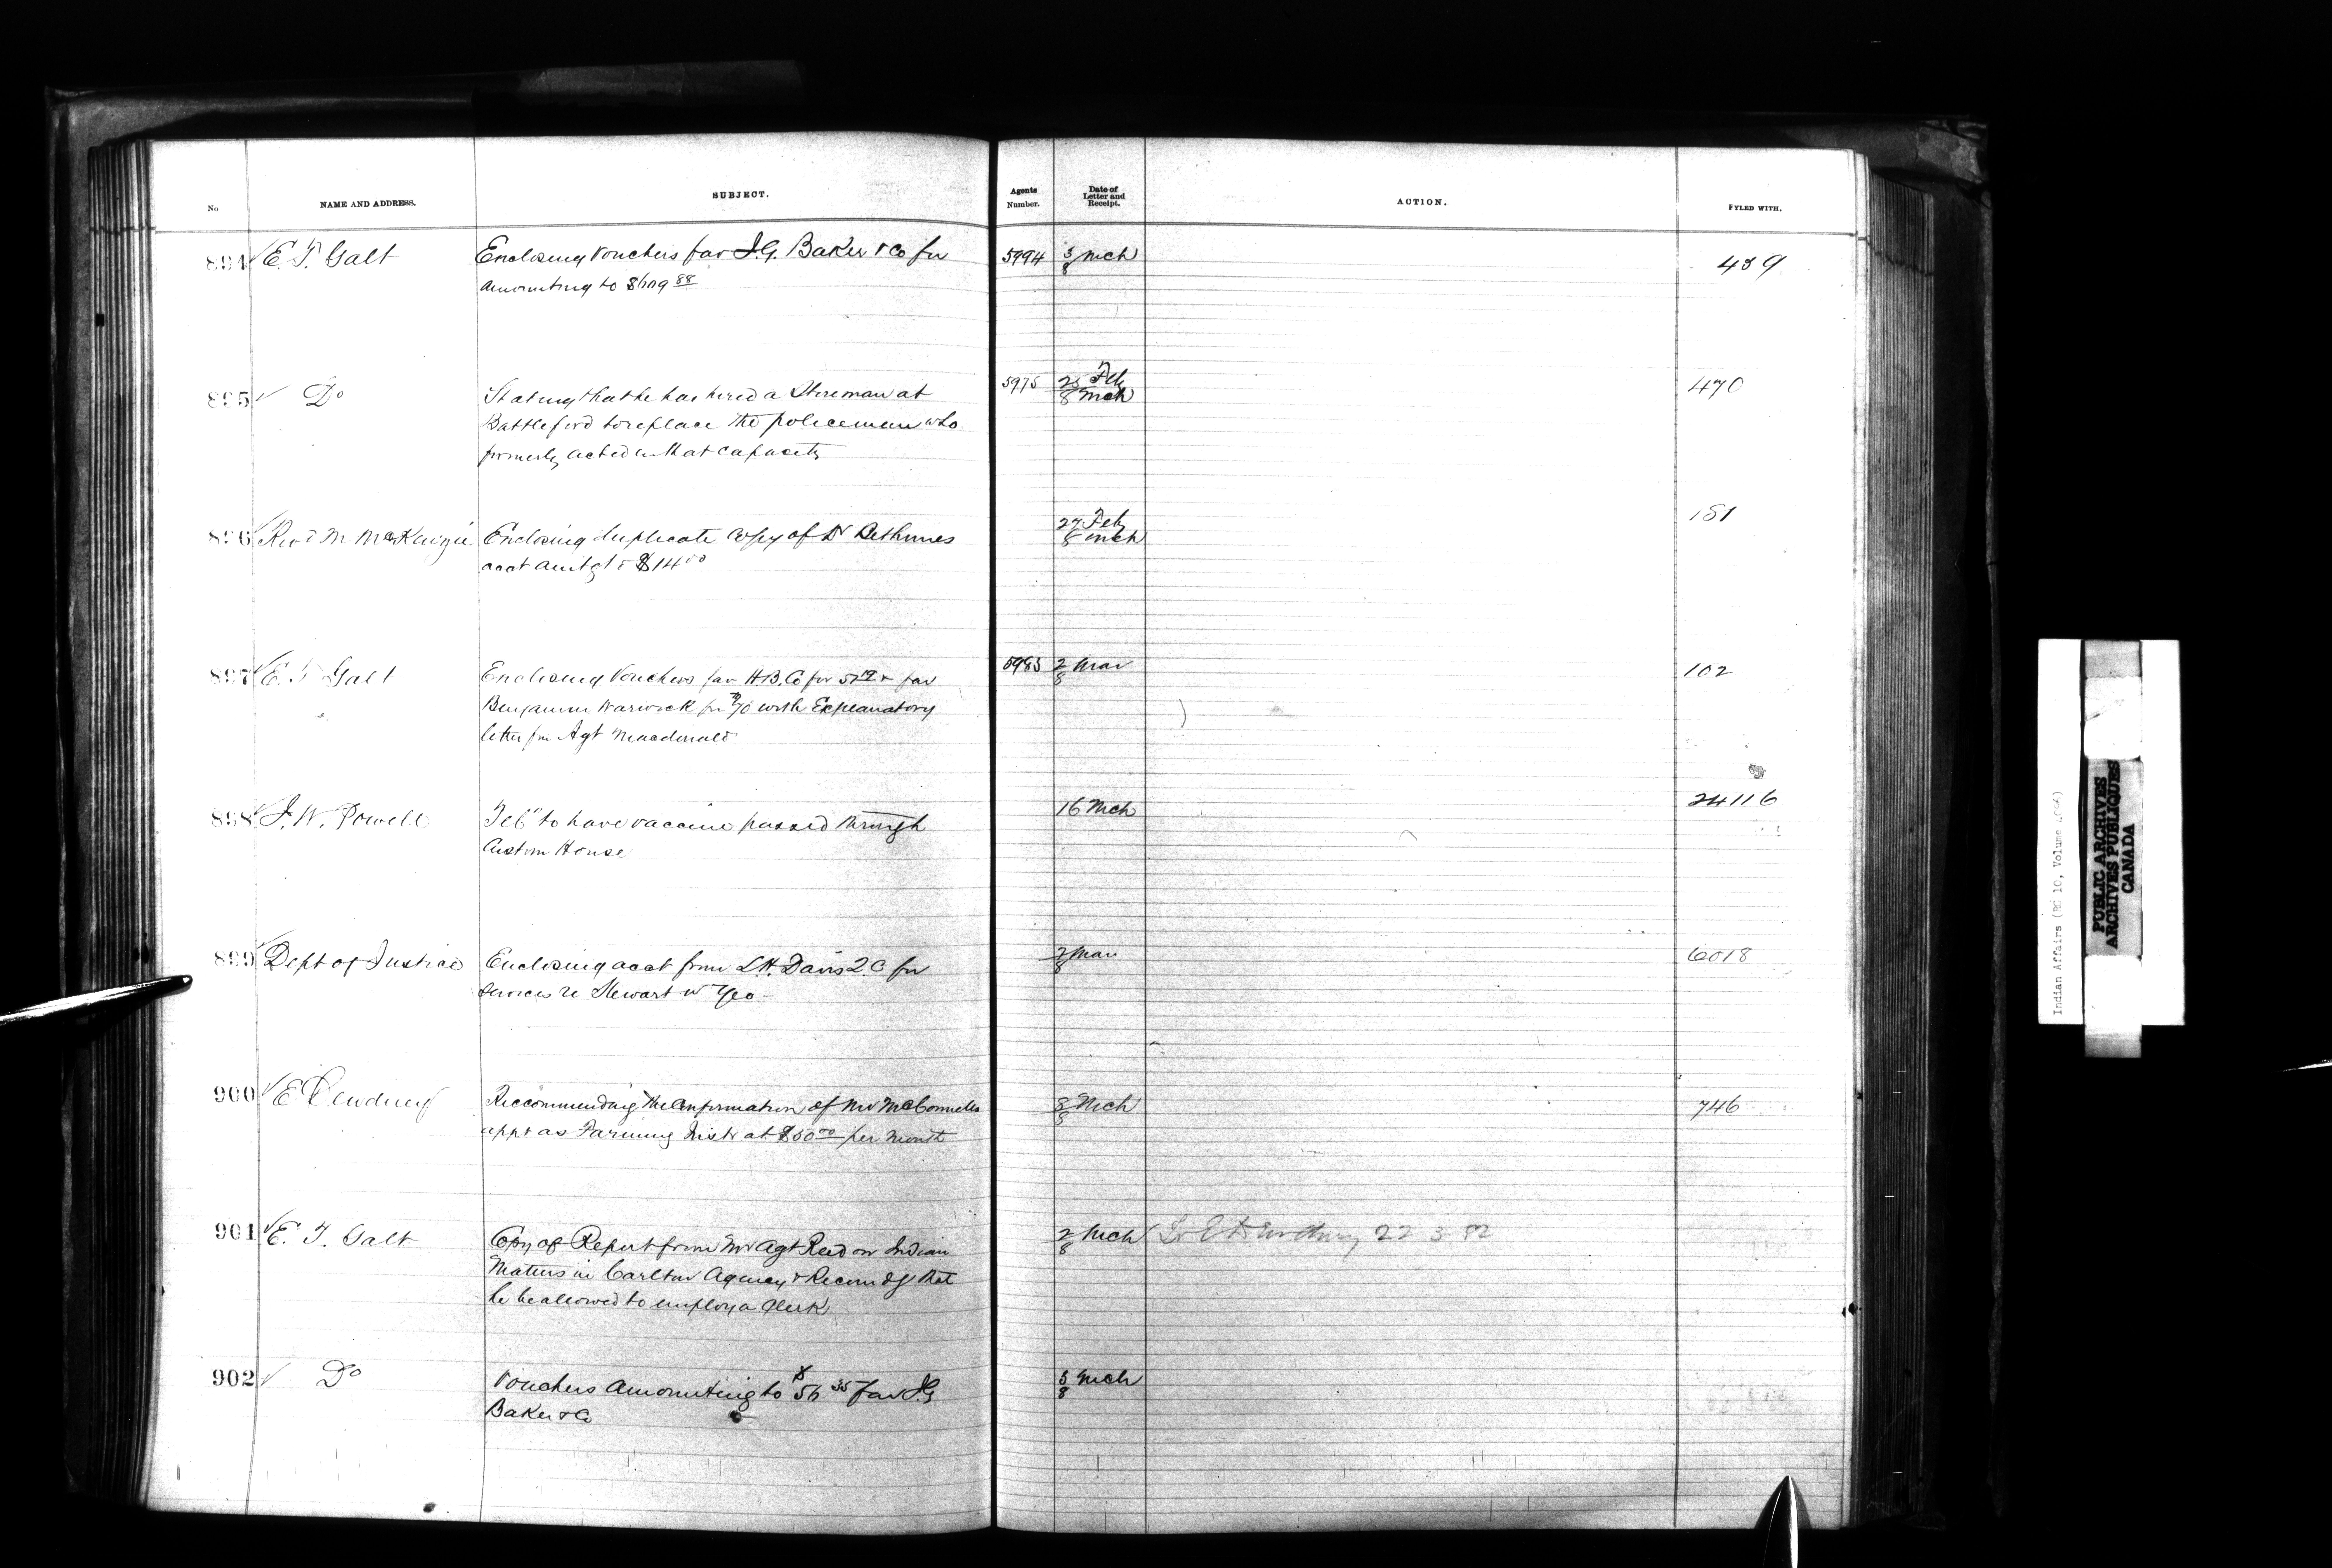 No. NAME AND ADDRESS. SUBJECT. Agents Number. Date of Letter and Receipt. ACTION. FYLED WITH.
894 E. T. Galt Enclosing vouchers fav J. G. Baker & Co for 5994 3/8 Mch 439
amounting to
895 Do Stating that he has hired a Storeman at 5975 25 Feb 470
Battleford to replace the policeman who 8 Mch
formerly acted in that capacity
896 Revd M McKenzie Enclosing duplicate copy of Dr Bethunes 27 Feb 181
acct amtg to $14 00 8 Mch
897 E. T. Galt Enclosing Vouchers fav H.B. Co for & fav 5983 2/8 Mar 102
Benjamin Warwick for with Explanatory
letter fm Agt Macdonald
898 J. W. Powell to have vaccine passed through 16 Mch 24116
Custom House
899 Dept of Justice Enclosing acct from L H. Davis Q.C for 2/8 Mar 6018
services re Stewart vs Yeo
900 E Dewdney Reccommending the Confirmation of Mr McConnells 8/8 Mch 746
appt as Farming Instr at $50 00 per month
901 E. T. Galt Copy of Report from Agt Reed on Indian 2/8 Mch Lr E Dewdney 22 3 82
Matters in Carlton Agency & Recomdg that
he be allowed to employ a Clerk
902 Do Vouchers amounting to 35 fav J.G 5/8 Mch
Baker & Co
Indian Affairs (RG 10, Volume
PUBLIC ARCHIVES
ARCHIVES PUBLIQUES
CANADA